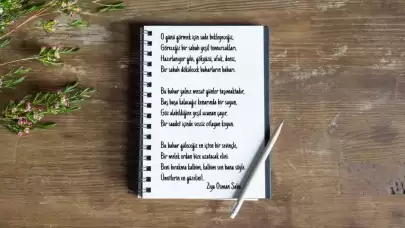 O günü görmek için sade bekleyeceğiz,
Göreceğiz bir sabah yeşil tomurcukları,
Hazırlanıyor gibi, gökyüzü, ufuk, deniz,
Bir sabah dökülecek baharların baharı.
Bu bahar yalnız mesut günler taşımaktadır,
Baş başa kalacağız kenarında bir suyun,
Göz alabildiğine yeşil uzanan çayır,
Bir saadet içinde sessiz otlayan koyun.
Bu bahar güleceğiz en içten bir sevinçle,
Bir melek ordan bize uzatacak elini.
Beni bırakma kalbim, kalbim sen bana söyle,
Ümitlerin en güzelini!..
Ziya Osman Saba